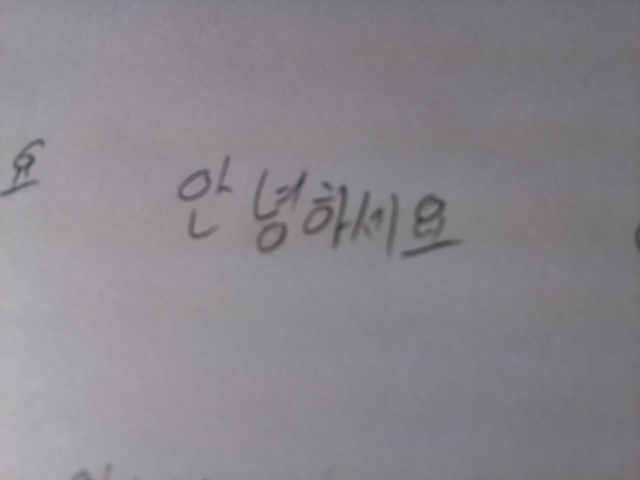 요 안녕하세요